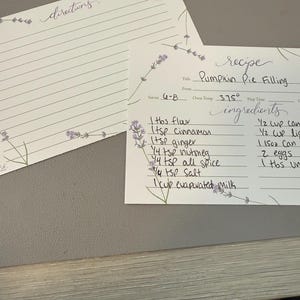 directions
recipe
Title Pumpkin Pie Filling
From
Serves 6-8 Oven Temp 375° Prep Time
ingredients
1 tbs flour
1 tsp cinnamon
1 tsp ginger
1/4 tsp nutmeg
1/4 tsp all spice
1/4 tsp Salt
1 cup evaporated milk
1/2 cup
1/2 cup
1 15oz can
2 eggs
1 tbs